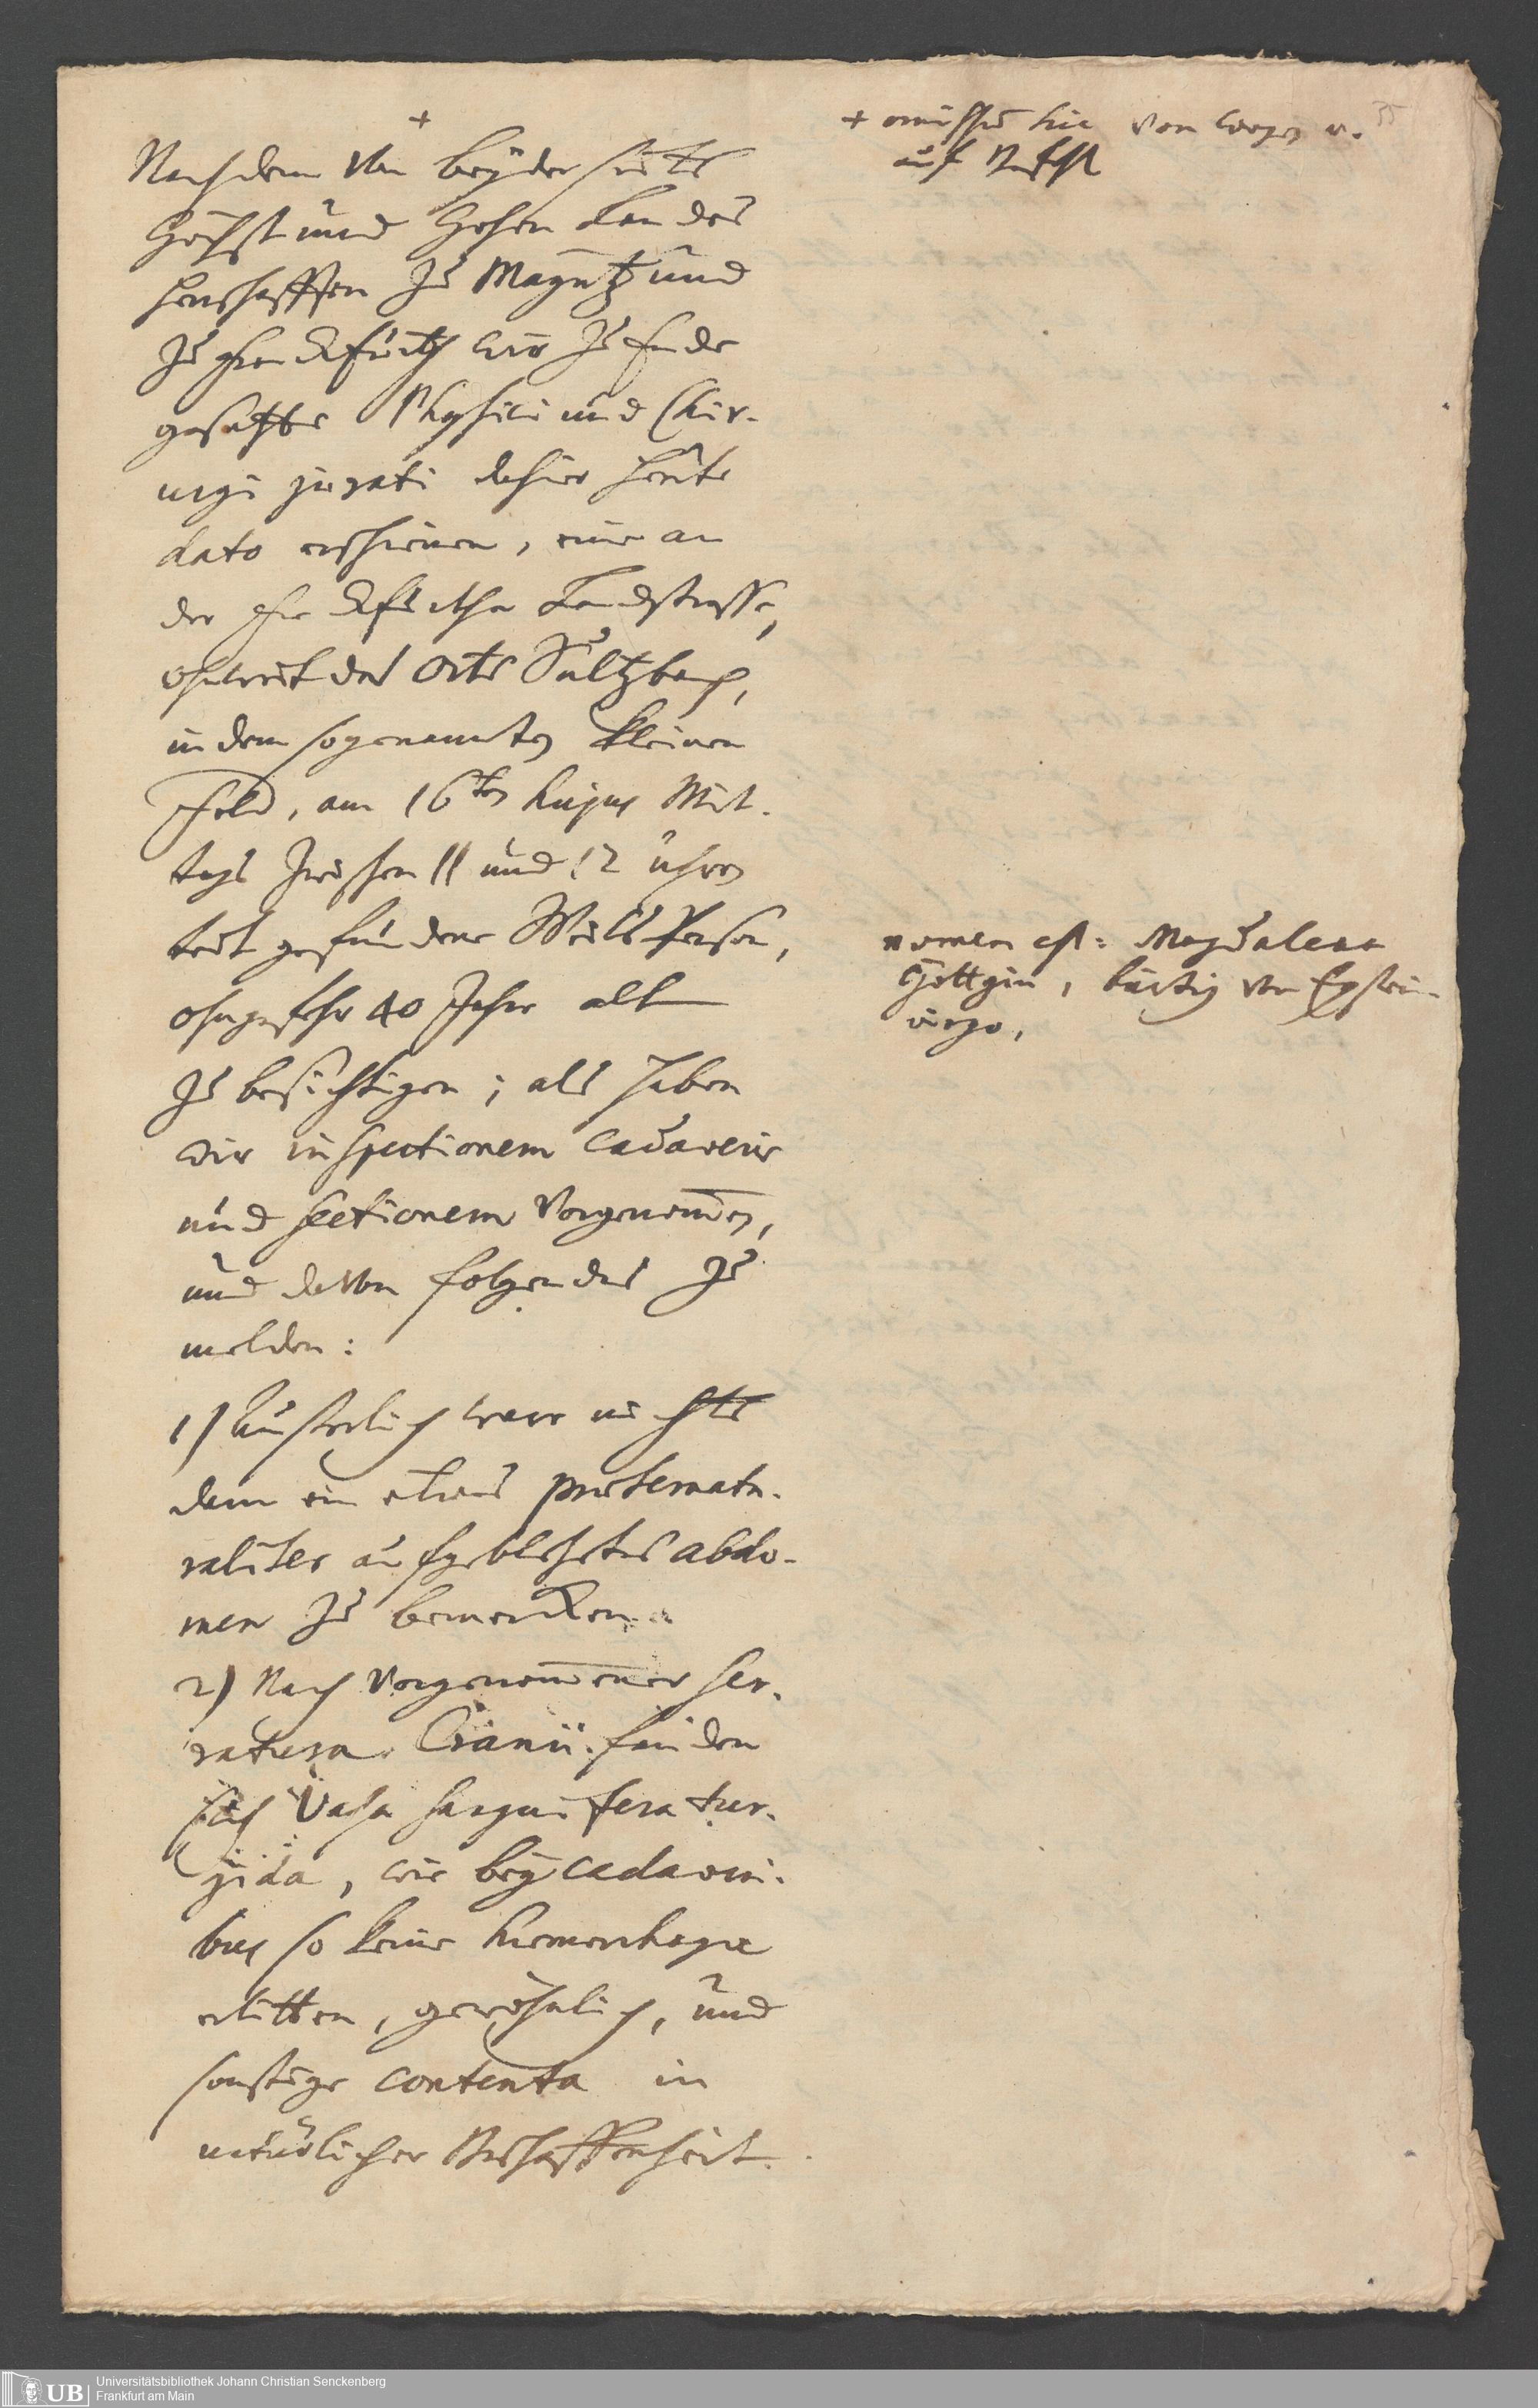 +
Nachdem von beyderseits
Höchst und Hohen Landes
herrschafften zu Mayntz und
zu Franckfurth wir zu Ende
gesetzte Physici und Chir-
urgi jurati dahier heute
dato erschienen, eine an
der Franckfurther Landstrasse,
ohnweit des Orts Sultzbach,
in dem sogenannten kleinen
Feld, am 16ten hujus Mit-
tags zwischen 11 und 12 uhren
todt gefundene Weibs Person,
ohngefehr 40 Jahr alt
zu besichtigen; als haben
wir inspectionem cadaveris
und sectionem vorgenom̅en,
und davon folgendes zu
melden:
1) Äusserlich ware nichts
dann ein etwas præternatu-
raliter aufgeblehetes abdo-
men zu bemercken.
2) Nach vorgenom̅ener ser-
ratura Cranii funden
sich Vasa sanguifera tur-
gida, wie bey cadaveri-
bus so keine hæmorrhagie
erlitten, gewöhnlich, und
sonstige contenta in
natürlicher Beschaffenheit.
+ omissum hic von wegen u.
auf Befehl
nomen est: Magdalena
Göttgin, bürtig von Epstein
virgo,
35
UB Universitätsbibliothek Johann Christian Senckenberg
Frankfurt am Main